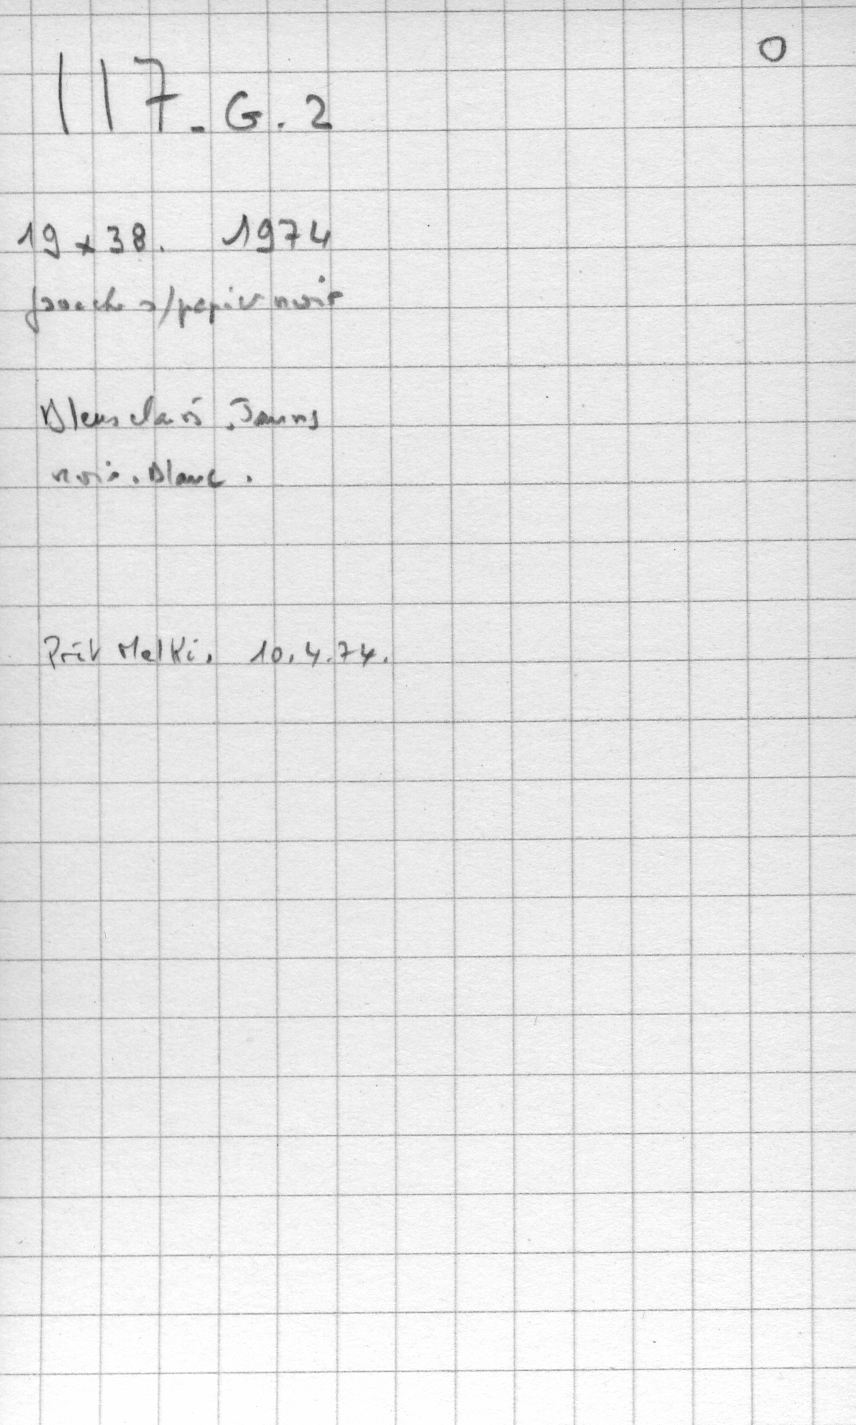 O
117_G.2
19 x 38. 1974
gouache s/papier noir
Bleus clairs. Jaunes
noir. Blanc.
Prêt Melki. 10.4.74.